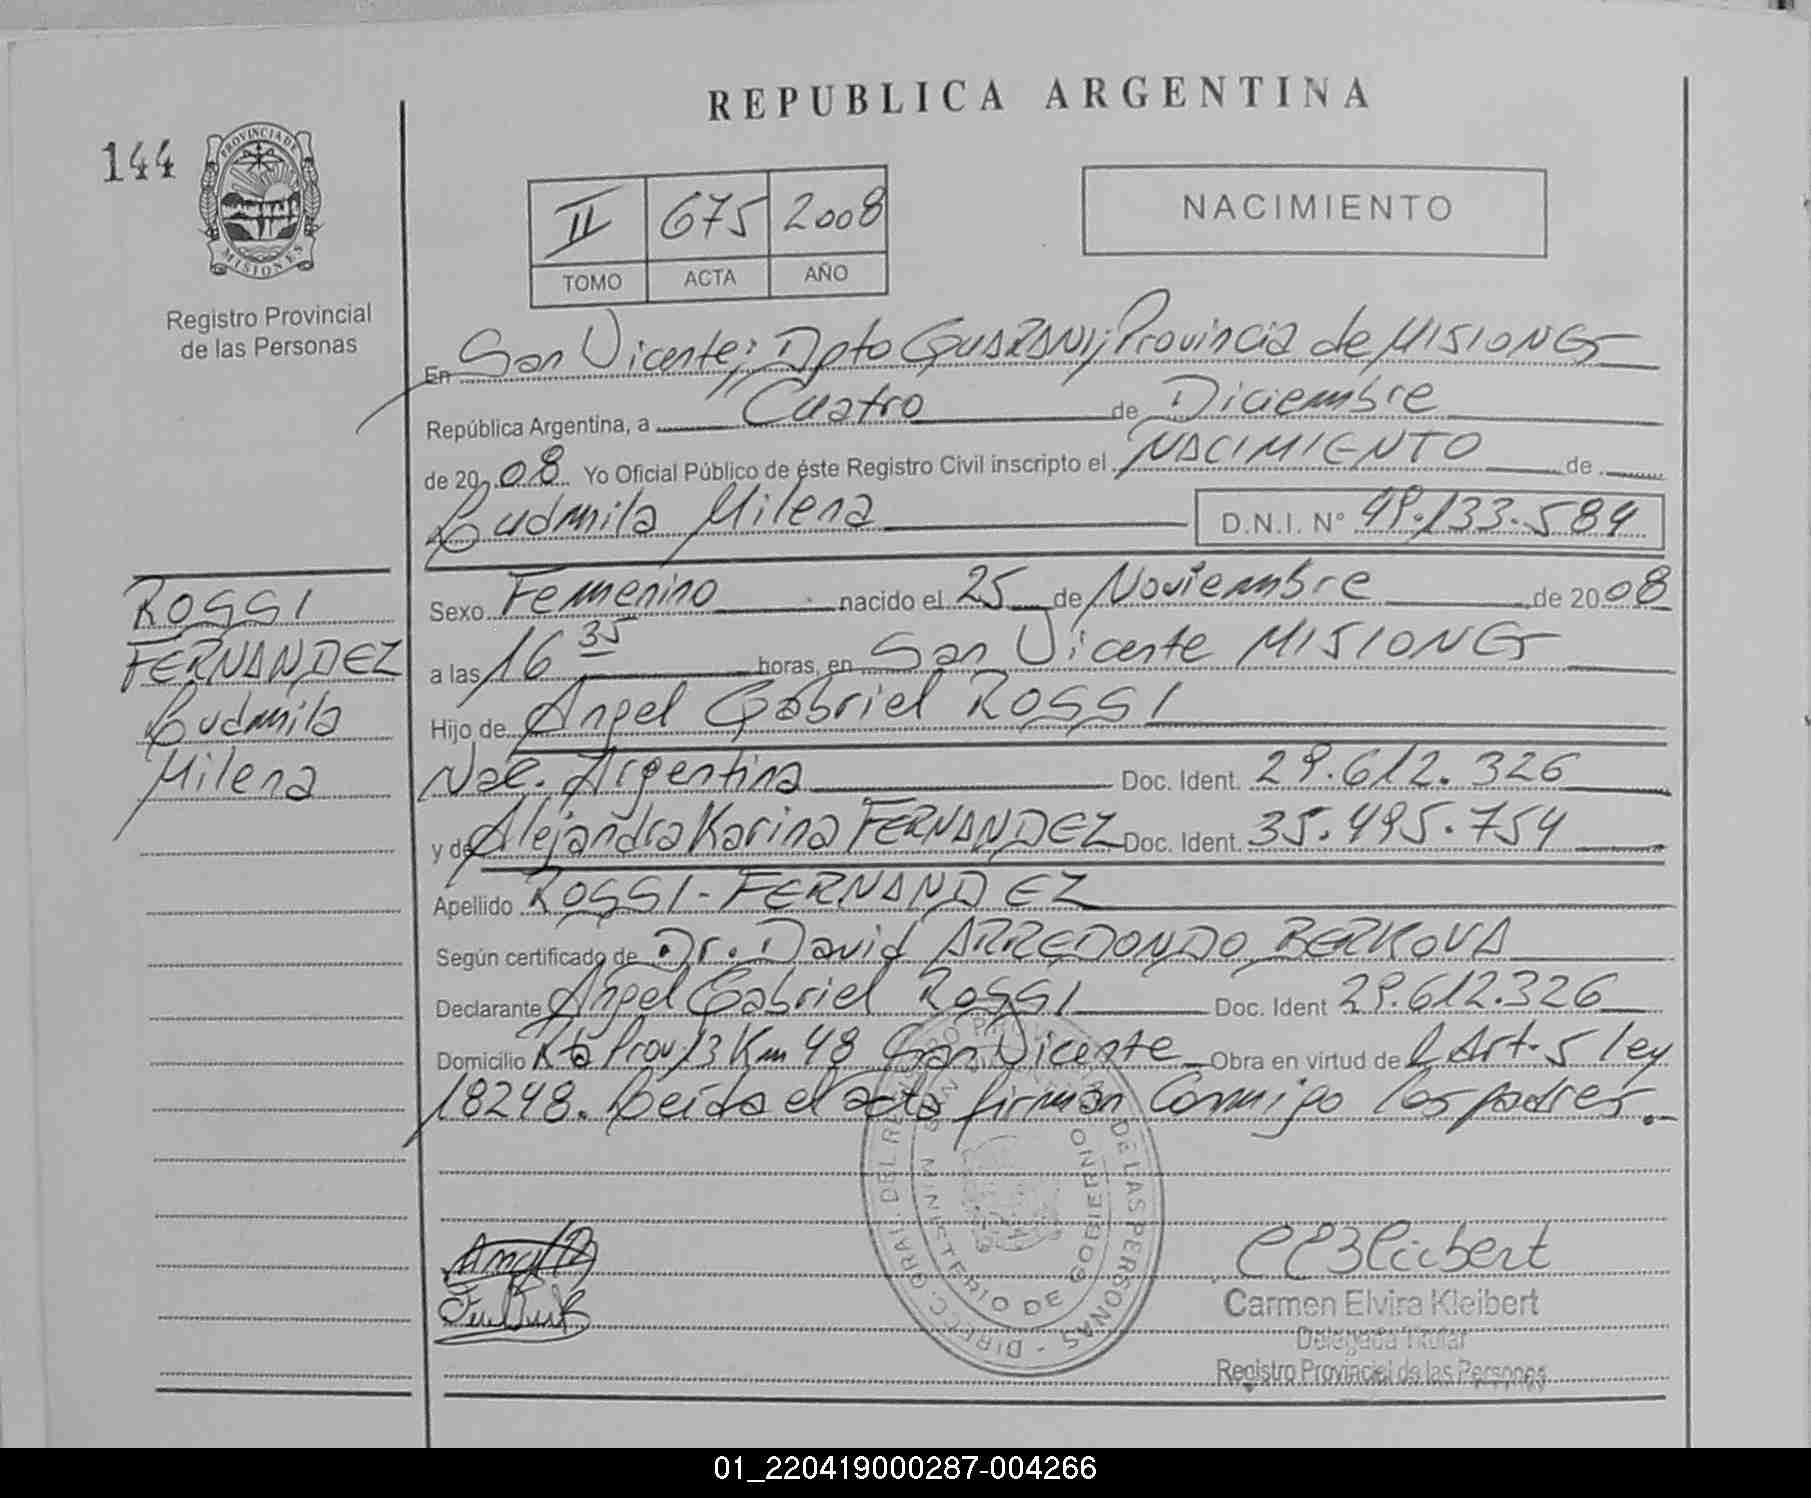 REPUBLICA ARGENTINA
144
PROVINCIA DE
MISIONES
Registro Provincial
de las Personas
II 675 2008
TOMO ACTA AÑO
NACIMIENTO
En San Vicente; Dpto GUARANI; Provincia de MISIONES
República Argentina, a Cuatro de Diciembre
de 2008 Yo Oficial Público de éste Registro Civil inscripto el NACIMIENTO de
Ludmila Milena D.N.I. N° 49.133.584
ROSSI
FERNANDEZ
Ludmila
Milena
Sexo Femenino nacido el 25 de Noviembre de 2008
a las 16 35 horas, en San Vicente MISIONES
Hijo de Angel Gabriel ROSSI
Nac. Argentina Doc. Ident. 29.612.326
y de Alejandra Karina FERNANDEZ Doc. Ident. 35.495.754
Apellido ROSSI-FERNANDEZ
Según certificado de Dr. David ARREDONDO BERKOVA
Declarante Angel Gabriel ROSSI Doc. Ident 29.612.326
Domicilio Rta Prov 13 Km 48 San Vicente Obra en virtud de L Art. 5 ley
18248. Leída el acta firman Conmigo los padres.
DIREC. GRAL. DEL DE LAS PERSONAS
MINISTERIO DE GOBIERNO
Carmen Elvira Kleibert
Delegada Titular
Registro Provincial de las Personas
01_220419000287-004266